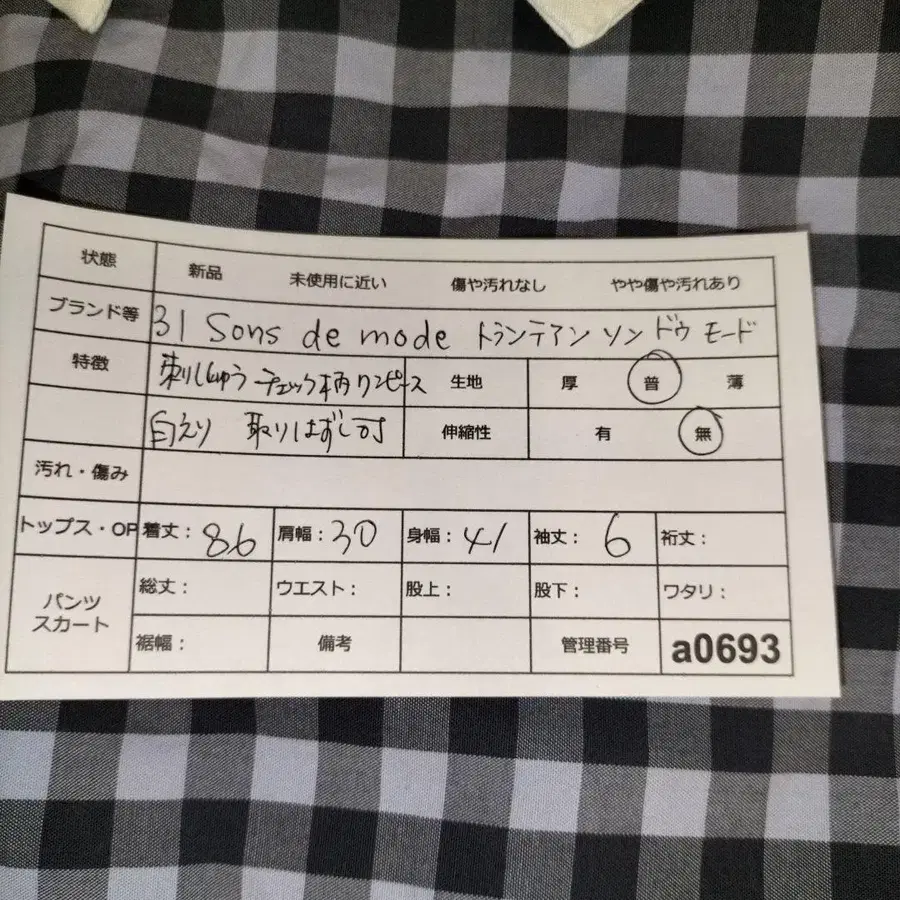 状態 新品 未使用に近い 傷や汚れなし やや傷や汚れあり
ブランド等 31 Sons de mode トランテアン ソン ドゥ モード
特徴 刺しゅう チェック柄ワンピース 生地 厚 普 薄
白えり 取りはずし可 伸縮性 有 無
汚れ・傷み
トップス・OP 着丈: 86 肩幅: 30 身幅: 41 袖丈: 6 裄丈:
パンツ スカート 総丈: ウエスト: 股上: 股下: ワタリ:
裾幅: 備考 管理番号 a0693